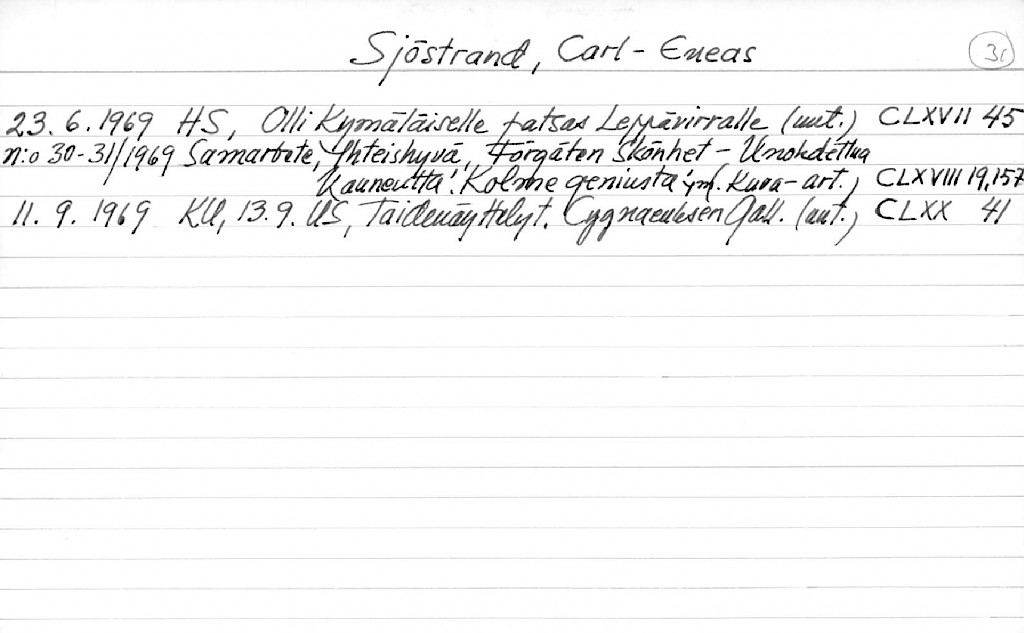 Sjöstrand, Carl-Eneas 31
23.6.1969 HS, Olli Kymäläiselle patsas Leppävirralle (uut.) CLXVII 45
n:o 30-31/1969 Samarbete, Yhteishyvä, Förgäten Skönhet - Unohdettua
Kauneutta'. Kolme geniusta' ym. Kuva-art.) CLXVIII 19,157
11.9.1969 KU, 13.9. US, Taidenäyttelyt. Cygnaeuksen Gall. (uut.) CLXX 41